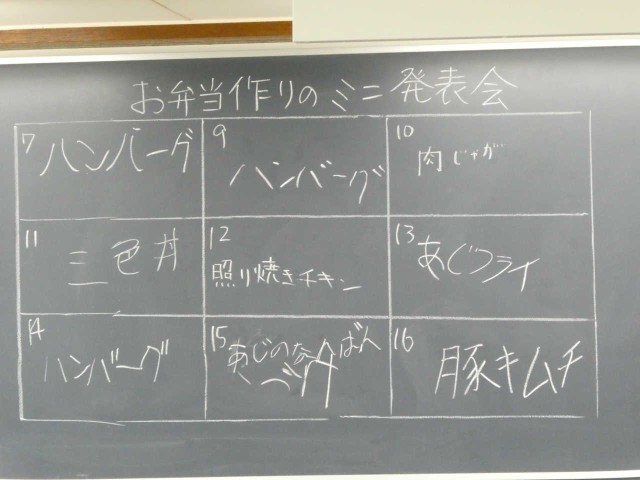 お弁当作りのミニ発表会
7 ハンバーグ
9 ハンバーグ
10 肉じゃが
11 三色丼
12 照り焼きチキン
13 あじフライ
14 ハンバーグ
15 あじのなんばん
づけ
16 豚キムチ